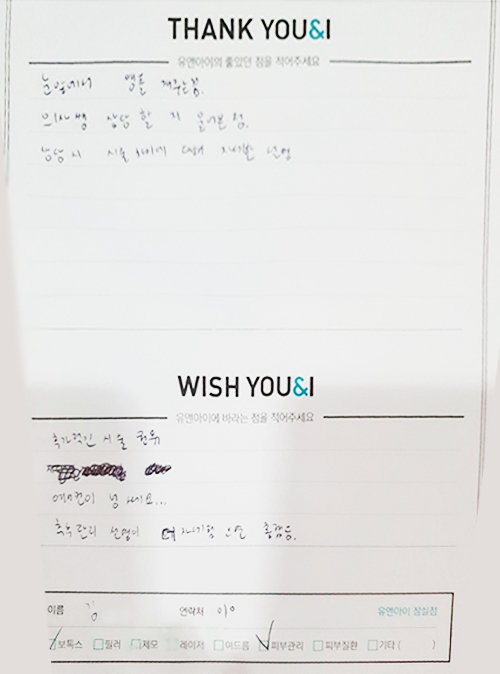 THANK YOU&I
유앤아이의 좋았던 점을 적어주세요
눈앞에서 앰플 까주는점.
의사쌤 상담 할 지 물어본 점.
상담 시 시술 차이에 대해 자세한 설명
WISH YOU&I
유앤아이에 바라는 점을 적어주세요
추가적인 시술 권유
에어컨이 넘 쎄요...
추후관리 설명이 더 자세할 으면 좋겠음.
이름 김 연락처 010 유앤아이 잠실점
보톡스 필러 제모 레이저 여드름 피부관리 피부질환 기타 ( )